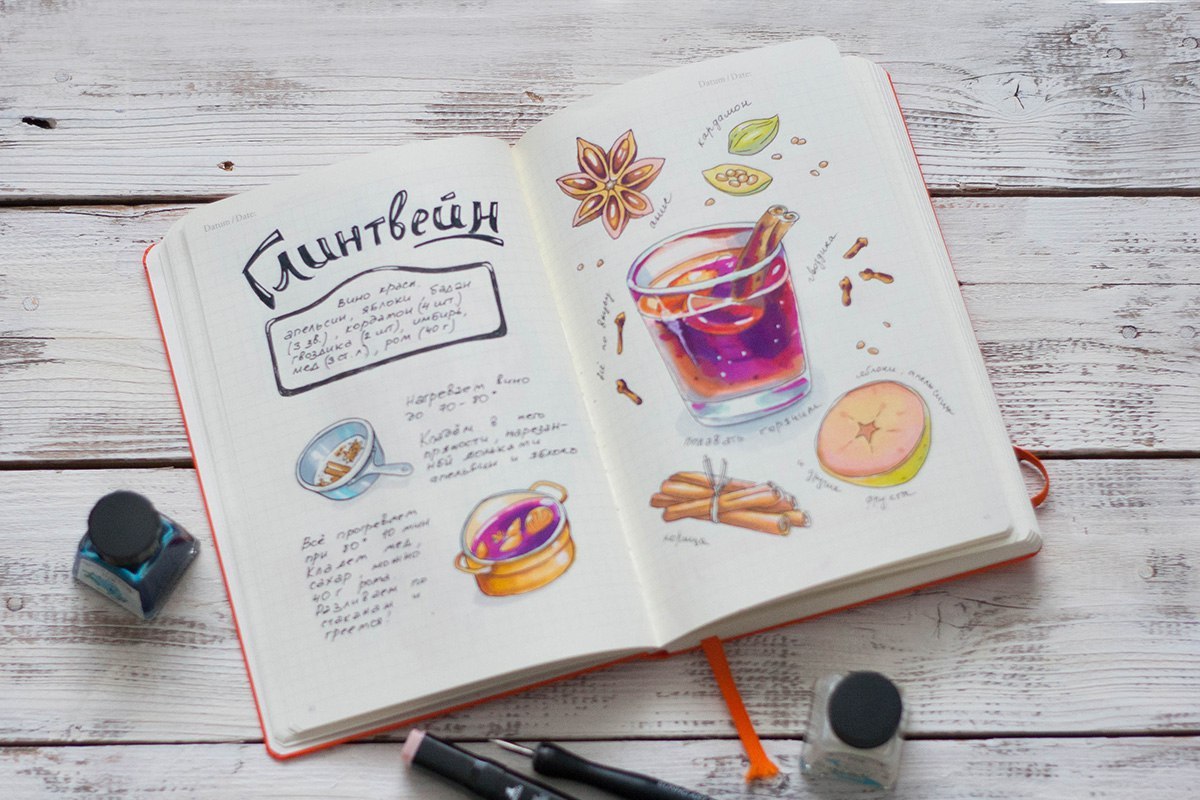 Datum / Date:
Глинтвейн
вино красн.
апельсин, яблоки, бадан
(3 зв.), кордамон (4 шт.)
гвоздика (2 шт), имбирь,
мед (3 ст. л), ром (40 г)
Нагреваем вино
до 70-80°
Кладём в него
пряности, нарезан-
ный дольками
апельсин и яблоко
Всё прогреваем
при 80°
Кладем мед,
сахар, можно
40 г рома.
Разливаем по
стаканам и
греемся!
Datum / Date:
кардамон
анис
гвоздика
всё по вкусу
яблоки, апельсины
подавать горячим
и другие
фрукты
корица